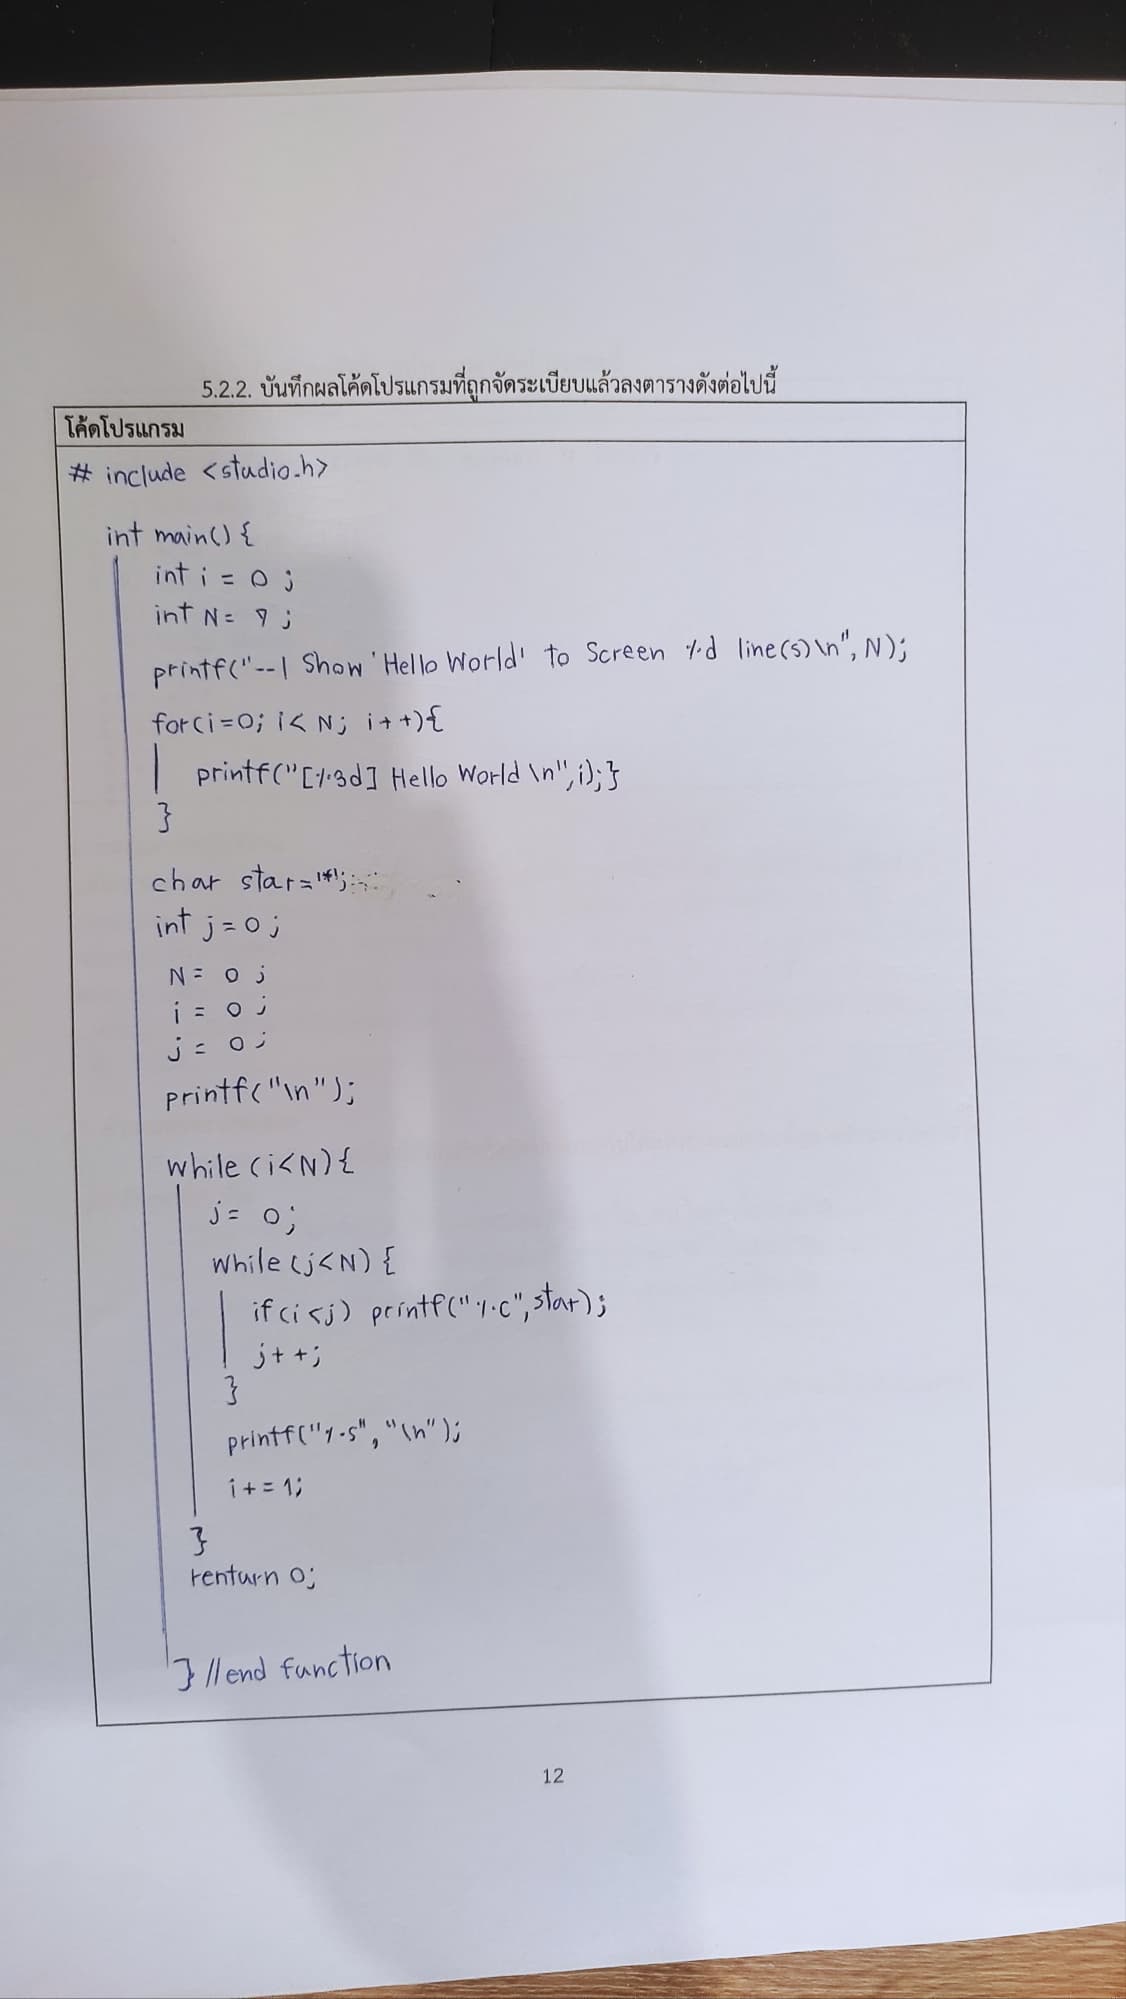 5.2.2. บันทึกผลโค้ดโปรแกรมที่ถูกจัดระเบียบแล้วลงตารางดังต่อไปนี้
โค้ดโปรแกรม
# include <studio.h>
int main() {
int i = 0 ;
int N = 9 ;
printf("--| Show 'Hello World' to Screen %d line(s)\n", N);
for(i=0; i< N; i++){
printf("[%3d] Hello World \n",i);}
}
char star='*';
int j=0 ;
N = 0 ;
i = 0 ;
j = 0 ;
printf("\n");
while (i<N){
j= 0;
while (j<N) {
if(i<j) printf("%c",star);
j++;
}
printf("%s", "\n");
i+=1;
}
renturn 0;
} //end function
12